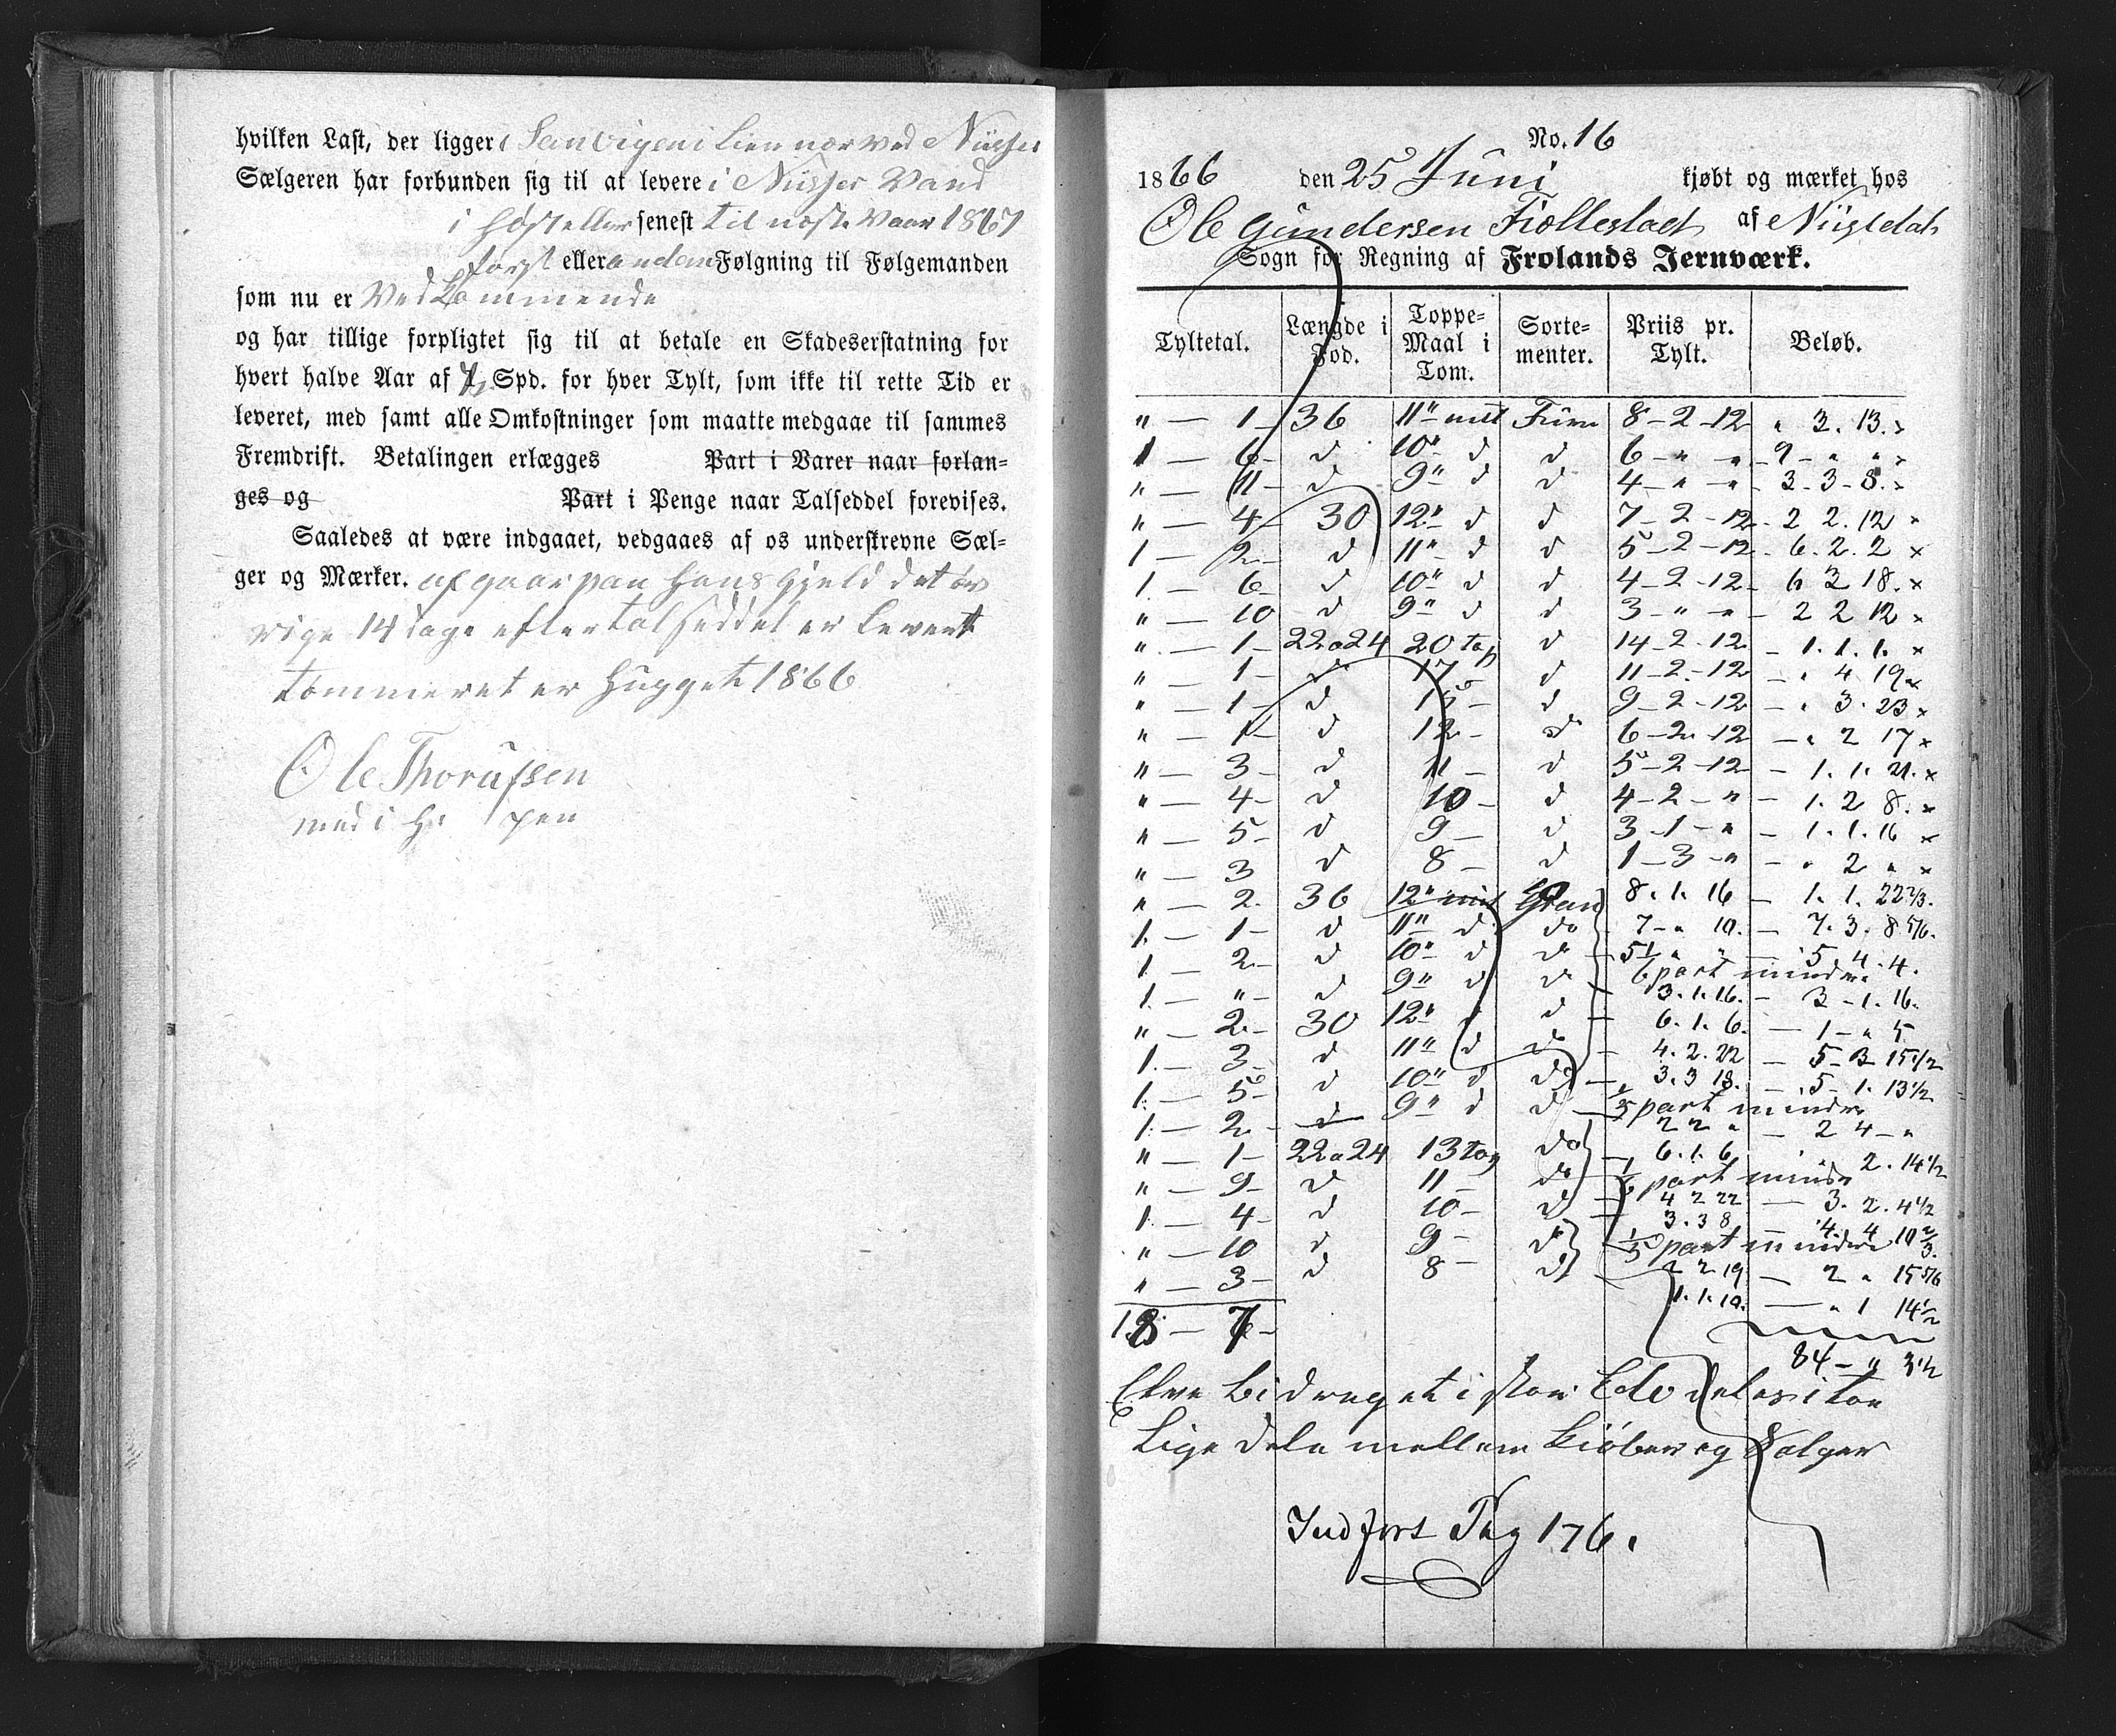 hvilken Last, der ligger i Sanvigen i Lien nær ved Nisser
Sælgeren har forbunden sig til at levere i Nisser Vand
i Høst eller senest til næste Vaar 1867
først eller anden Følgning til Følgemanden
som nu er Vedkommende
og har tillige forpligtet sig til at betale en Skadeserstatning for
hvert halve Aar af ½ Spd. for hver Tylt, som ikke til rette Tid er
leveret, med samt alle Omkostninger som maatte medgaae til sammes
Fremdrift. Betalingen erlægges Part i Varer naar forlan-
ges og Part i Penge naar Talseddel forevises.
Saaledes at være indgaaet, vedgaaes af os underskrevne Sæl-
ger og Mærker. afgaar paa Hans Gjeld det øv
rige 14 dage efter talseddel er levert
tømmeret er Hugget 1866
Ole Thorüfsen
med i H: Pen
No. 16
1866 den 25 Juni kjøbt og mærket hos
Ole Gundersen Fiollestad af Nissedal
Sogn for Regning af Frolands Jernværk.
Tyltetal. Længde i Fod. Toppe-Maal i Tom. Sorte-menter. Priis pr. Tylt. Beløb.
" — 1 36 11" mit Furu 8-2-12 " 3. 13. ×
1 — 6 d 10" d d 6 - " - " 9 - " " ×
" — 11 d 9" d d 4 - " - " 3-3-8. ×
" — 4 30 12" d d 7-2-12 2 2. 12 ×
1 — 2 d 11" d d 5-2-12 6. 2. 2 ×
1. — 6 d 10" d d 4-2-12 6 3 18. ×
" — 10 d 9" d d 3 - " - " 2 2 12 ×
" — 1 22 a 24 20 top d 14-2-12 1. 1. 1. ×
" — 1 d 17 d 11-2-12 " 4 19 ×
" — 1 d 15 d 9-2-12 " 3. 23 ×
" — 1 d 12 d 6-2-12 " 2 17 ×
" — 3 d 11 d 5-2-12 1. 1. 21. ×
" — 4 d 10 d 4-2-" 1. 2 8. ×
" — 5 d 9 d 3-1-" 1. 1. 16 ×
" — 3 d 8 d 1-3-" " 2 " ×
" — 2. 36 12" mit Gran 8. 1. 16 1. 1. 22 2/3.
1. — 1 d 11" d do 7 - " 10. 7. 3. 8 5/6.
1 — 2 d 10" d do 5 " " 5. 4. 4.
1/6 part mindre
1. — " d 9" d d 3. 1. 16. 3 - 1. 16.
" — 2 30 12" d d 6. 1. 6. 1 - " 5
1. — 3 d 11" d do 4. 2. 22 5-3 15 1/2
1. — 5 d 10" d do 3. 3 18. 5 - 1. 13 1/2
1/5 part mindre
1. — 2 d 9" d d 2 2 " 2 4 - "
" — 1 22 a 24 13 top do 6. 1. 6 " 2. 14 1/2
1/6 part mindre
" — 9 d 11 do 4 2 22 3. 2. 4 1/2
1. — 4 d 10 d 3. 3 8 4. 4 10 2/3.
1/5 part mindre
" — 10 d 9 do 2 2 19 2 " 15 5/6
" — 3 d 8 d 1. 1. 10. " 1 14 1/2
18 — 7
84 - " 3 1/2
Elve bidraget i stor Elv deles i toe
Lige dele mellem kiøber og Sælger
Indført Pag 176.